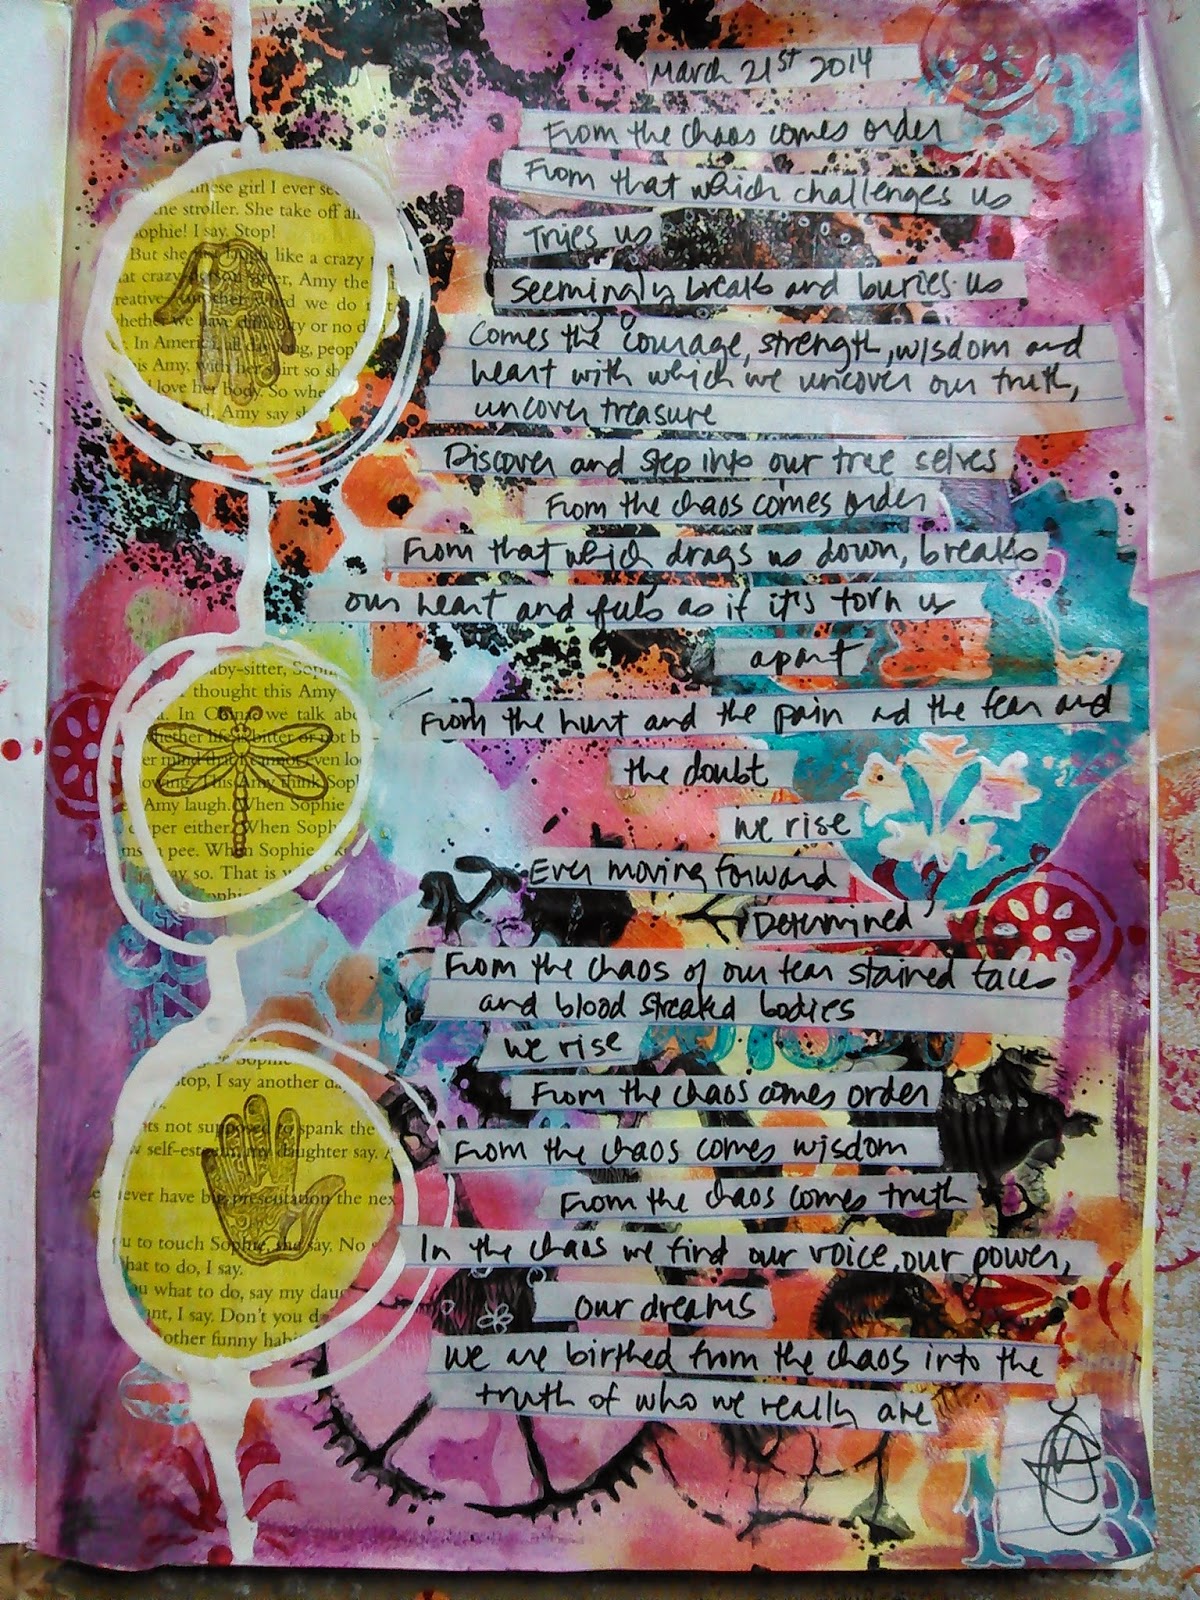 March 21st 2014
From the chaos comes order
From that which challenges us
Tries us
Seemingly breaks and buries us
Comes the courage, strength, wisdom and
heart with which we uncover our truth,
uncover treasure
Discover and step into our true selves
From the chaos comes order
From that which drags us down, breaks
our heart and feels as if it's torn us
apart
From the hurt and the pain and the fear and
the doubt
we rise
Ever moving forward
Determined
From the chaos of our tear stained faces
and blood streaked bodies
we rise
From the chaos comes order
From the chaos comes wisdom
From the chaos comes truth
In the chaos we find our voice, our power,
our dreams
We are birthed from the chaos into the
truth of who we really are
nese girl I ever se
the stroller. She take off all
ophie! I say. Stop!
But she laugh like a crazy
at crazy Amy the
reative we do
whether we have difficulty or no d
. In America, all day long, peop
is Amy, with her shirt so sh
love her body. So whe
Amy say sh
aby-sitter, Soph
thought this Amy
. In China, we talk abo
hether life is bitter or not b
er mind that I cannot even lo
This Amy think Soph
Amy laugh. When Sophie
per either. When Soph
pee. When Sophie
ay so. That is
Sophie
Sophie
stop, I say another da
ts not supposed to spank the
self-esteem, my daughter say.
never have big presentation the nex
u to touch Sophie, she say. No
hat to do, I say.
u what to do, say my dau
nt, I say. Don't you d
other funny hab